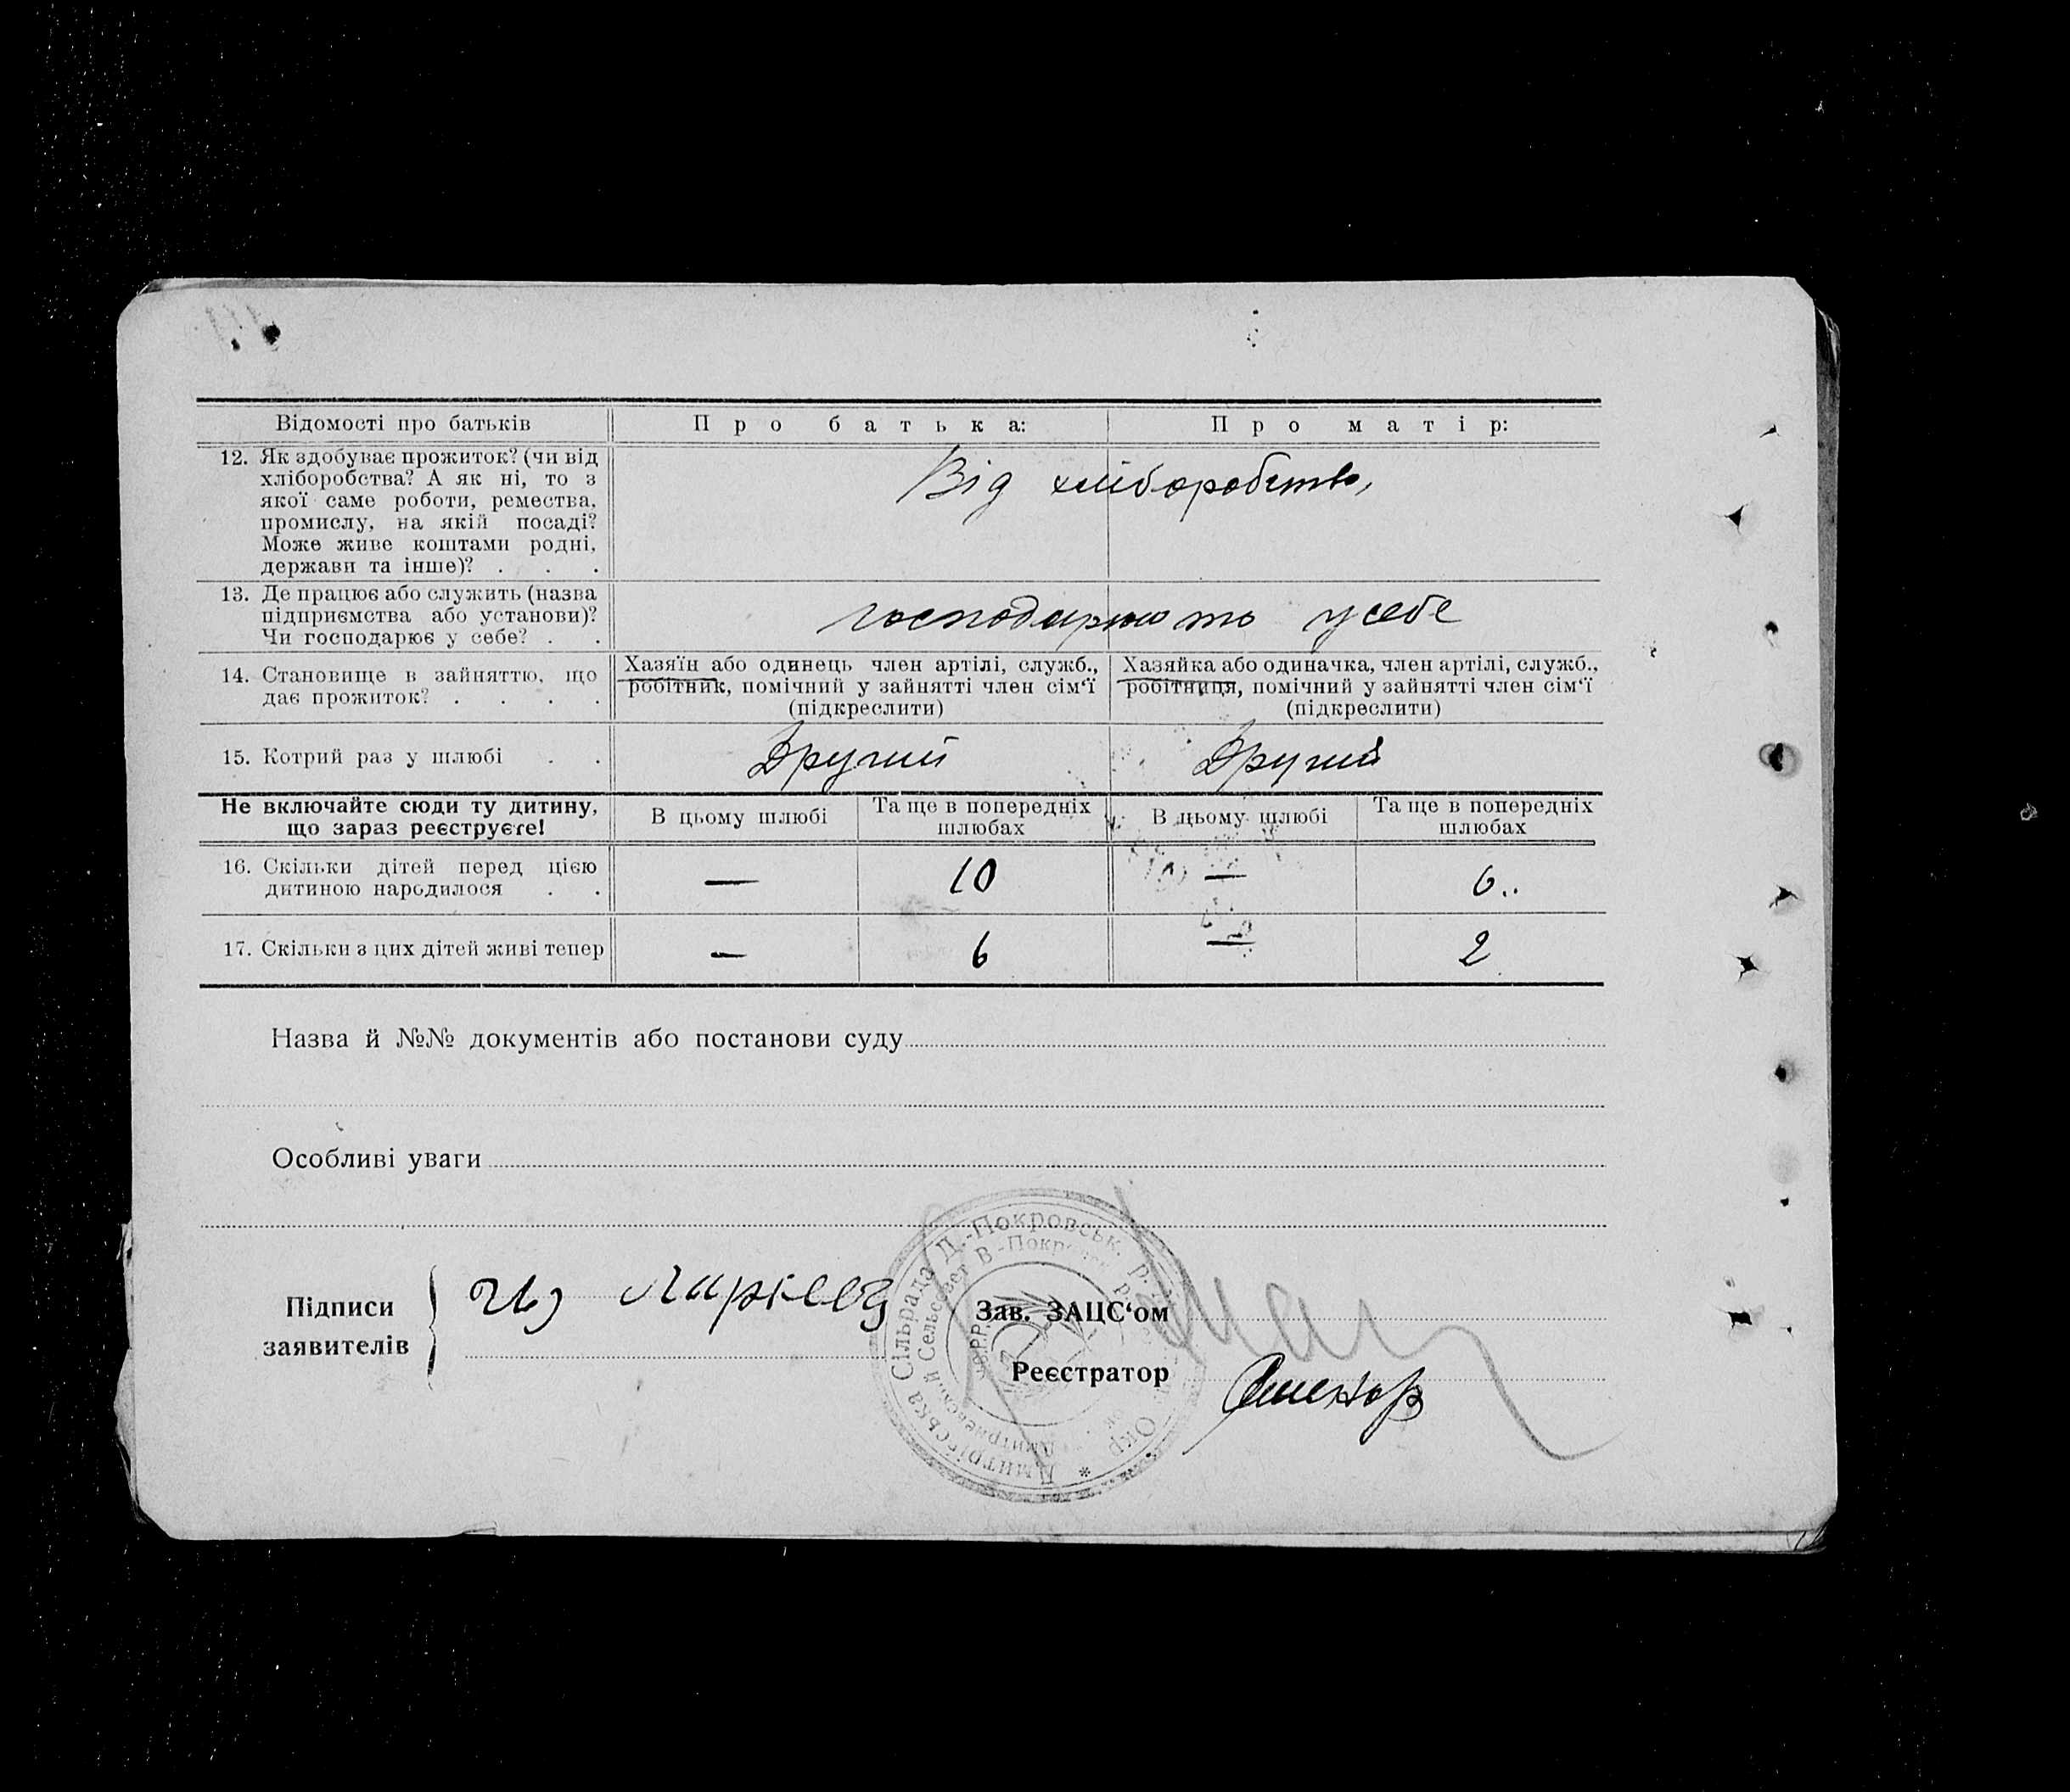 Відомості про батьків
Про батька:
Про матір:
12. Як здобуває прожиток? (чи від
хліборобства? А як ні, то з
якої саме роботи, ремества,
промислу, на якій посаді?
Може живе коштами родні,
держави та інше)? . . .
Від хліборобства,
13. Де працює або служить (назва
підприємства або установи)?
Чи господарює у себе? . .
господарюють у себе
14. Становище в зайняттю, що
дає прожиток? . . . .
Хазяїн або одинець член артілі, служб.,
робітник, помічний у зайнятті член сім'ї
(підкреслити)
Хазяйка або одиначка, член артілі, служб.,
робітниця, помічний у зайнятті член сім'ї
(підкреслити)
15. Котрий раз у шлюбі . .
Другий
Другий
Не включайте сюди ту дитину,
що зараз реєструєте!
В цьому шлюбі
Та ще в попередніх
шлюбах
В цьому шлюбі
Та ще в попередніх
шлюбах
16. Скільки дітей перед цією
дитиною народилося . .
—
10
—
6..
17. Скільки з цих дітей живі тепер
—
6
—
2
Назва й №№ документів або постанови суду
Особливі уваги
Підписи
заявителів
Зав. ЗАЦС'ом
Реєстратор
Дмитрієвська Сільрада Д.-Покровськ. р. Окр. *
Дмитриевский Сельсовет В-Покр